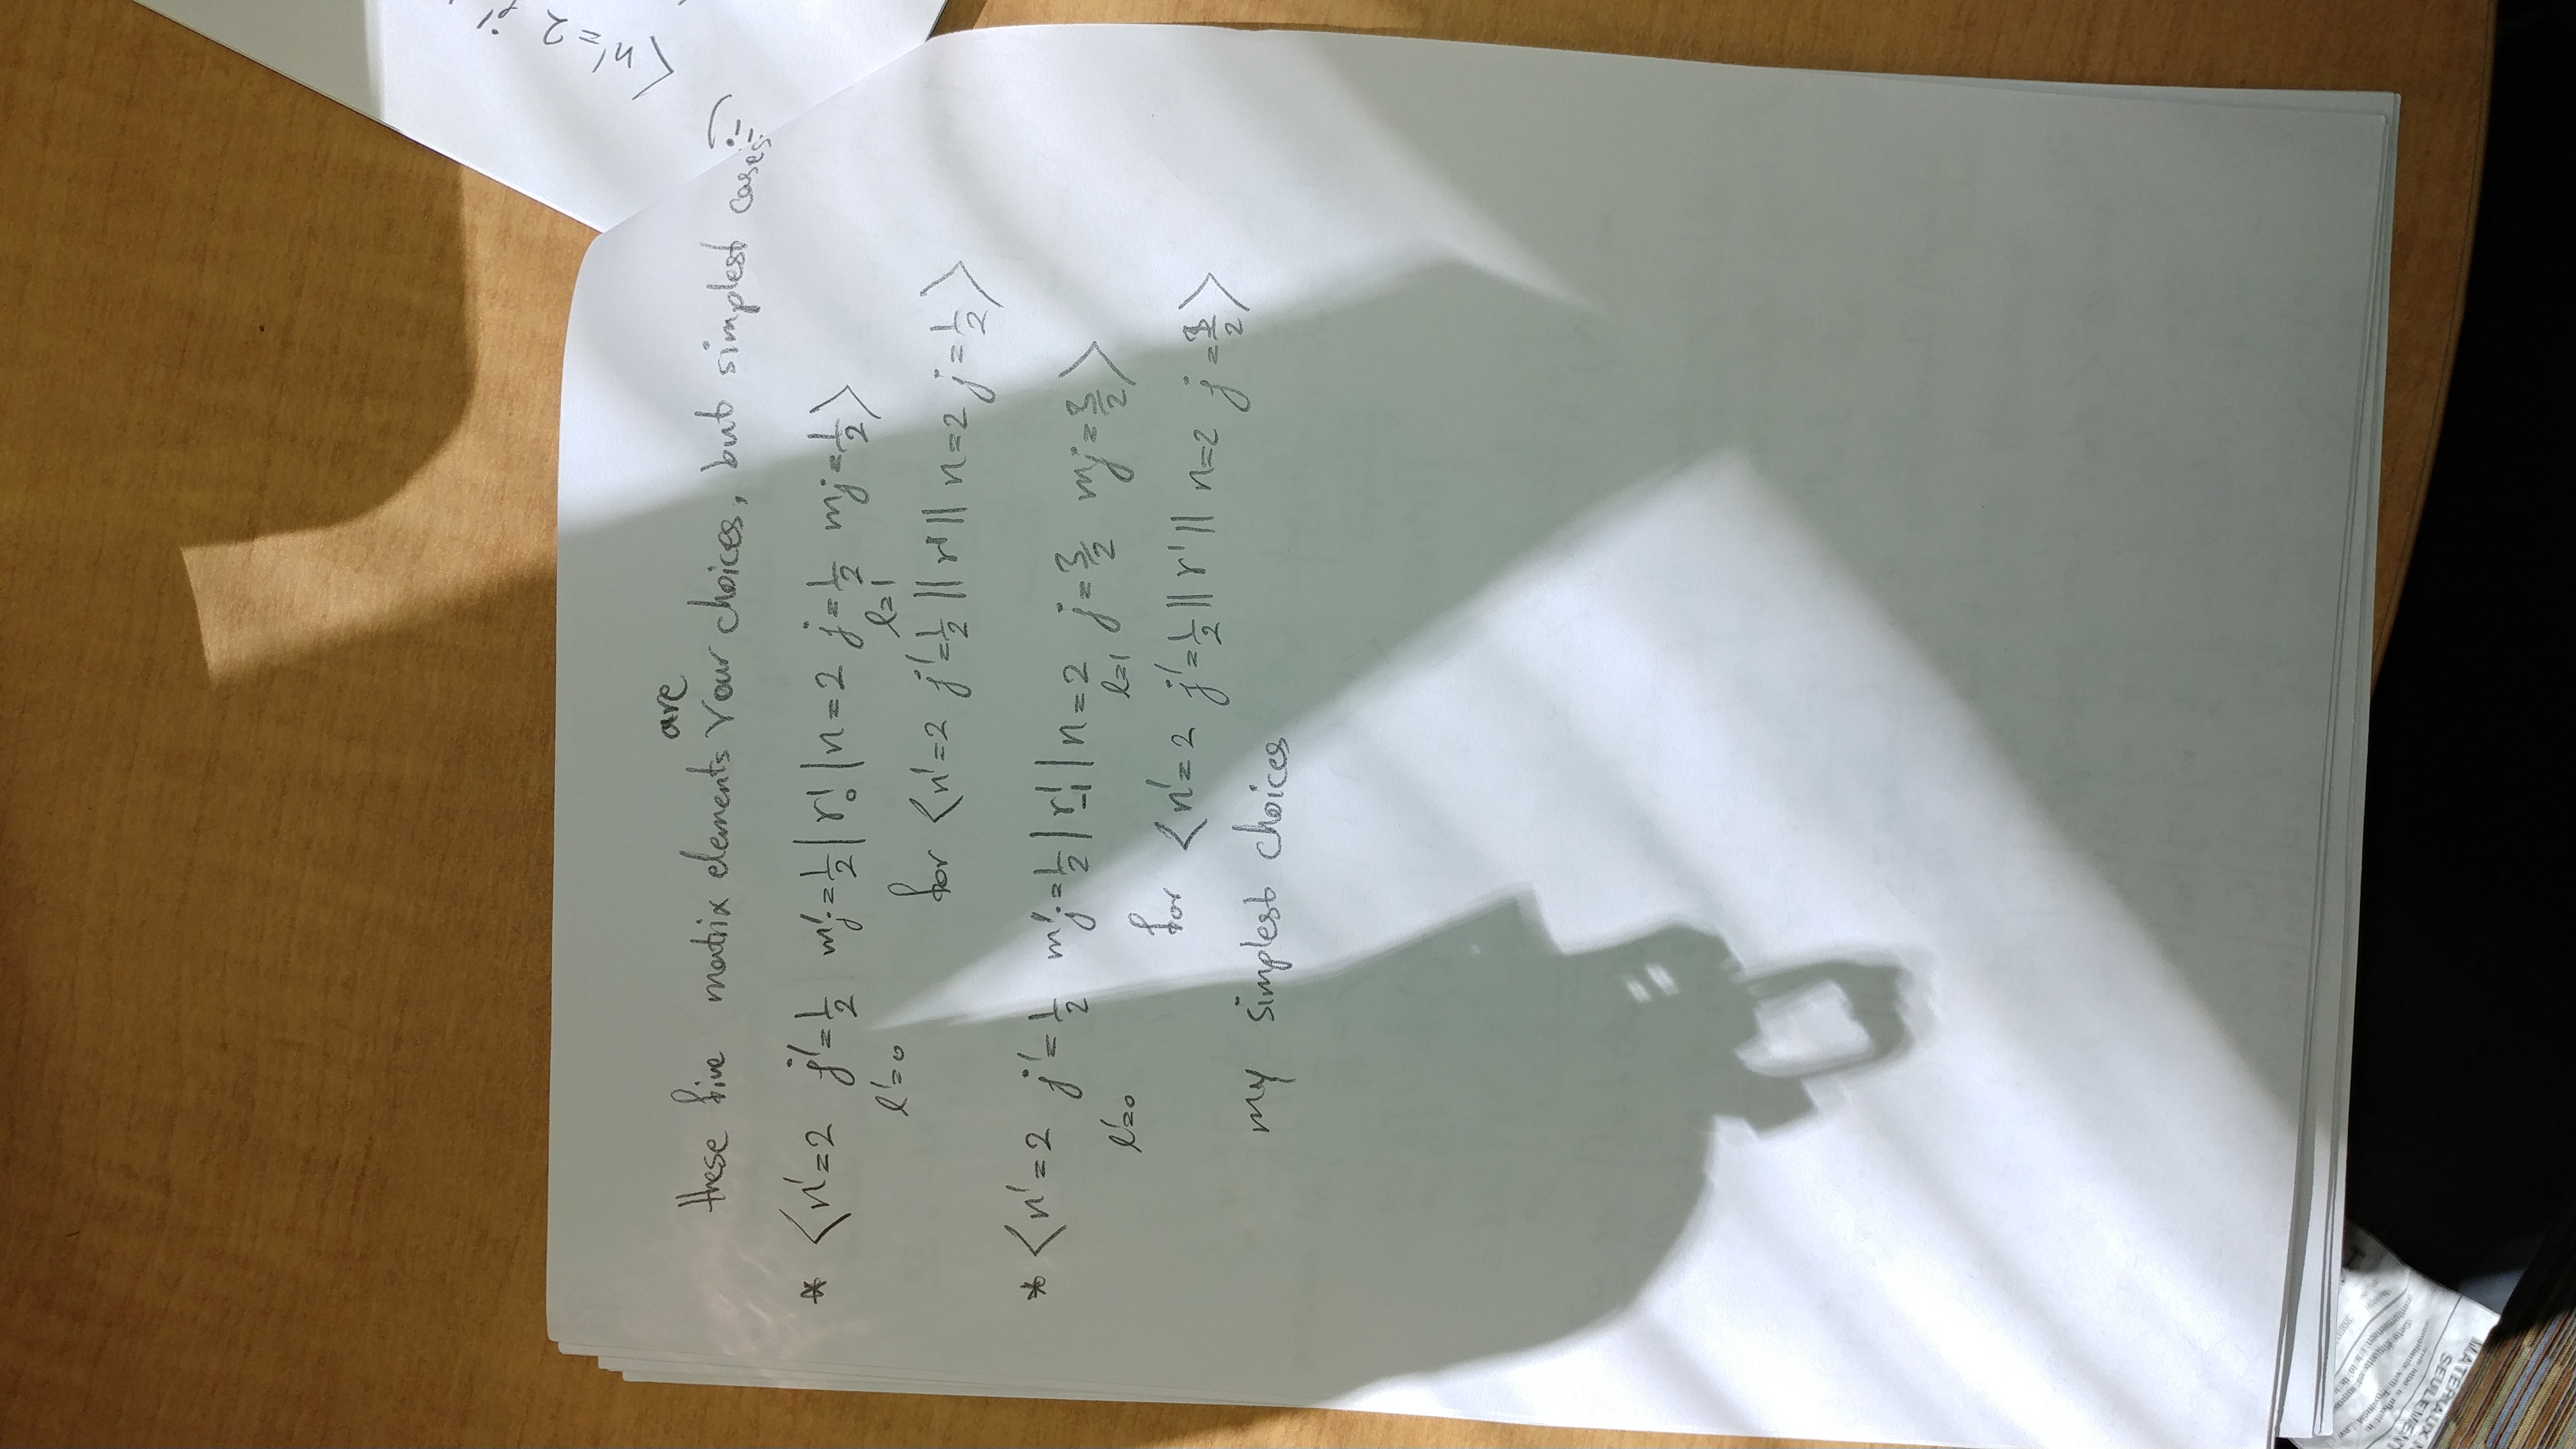 are
these five matrix elements your choices, but simplest cases :)
* ⟨n'=2 j'=1/2 m'j=1/2|r¹₀|n=2 j=1/2 mj=1/2⟩
l'=0 l=1
for ⟨n'=2 j'=1/2 ||r¹|| n=2 j=1/2⟩
* ⟨n'=2 j'=1/2 m'j=1/2|r¹₋₁|n=2 j=3/2 mj=3/2⟩
l'=0 l=1
for ⟨n'=2 j'=1/2 ||r¹|| n=2 j=3/2⟩
my simplest choices
⟨n'=2 j'
SEULEMENT